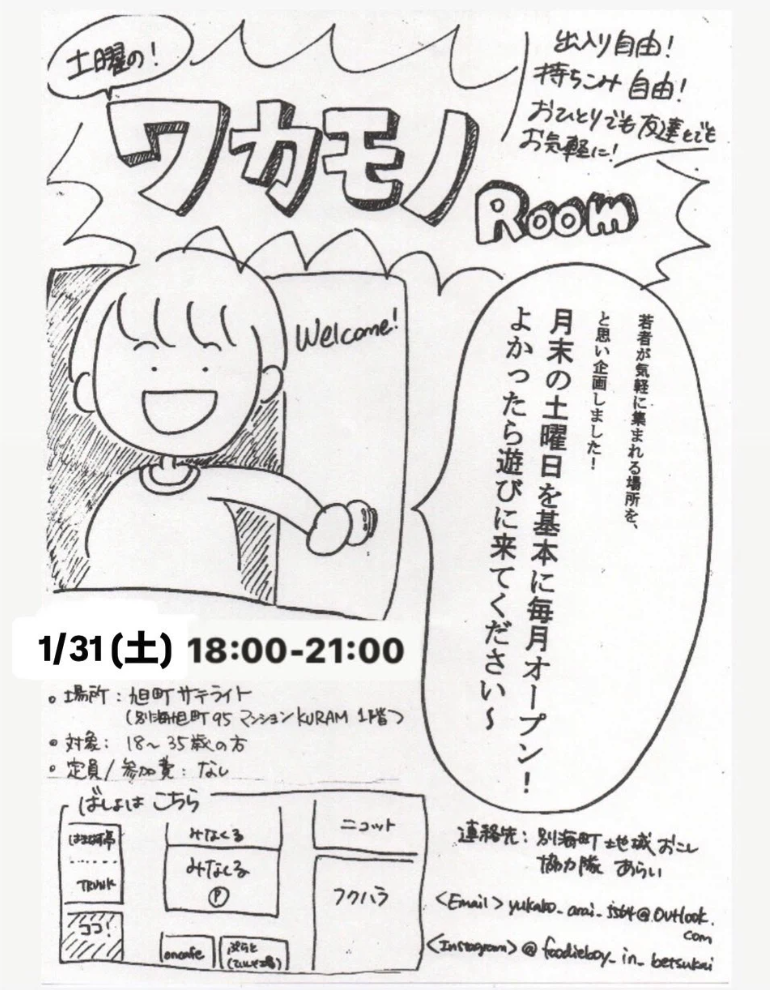 土曜の!
ワカモノ
Room
出入り自由!
持ちこみ自由!
おひとりでも友達とでも
お気軽に!
Welcome!
若者が気軽に集まれる場所を、
と思い企画しました!
月末の土曜日を基本に毎月オープン!
よかったら遊びに来てください~
1/31(土) 18:00-21:00
・場所:旭町サテライト
(別海旭町95 マンションKURAM 1階)
・対象:18~35歳の方
・定員/参加費:なし
ばしょは こちら
TRUNK
ココ!
みなくる
みなくる
P
oncafe
ぷらと
ニコット
フクハラ
連絡先:別海町地域おこし
協力隊 あらい
<Email> yukako_arai_5564@outlook.
com
<Instagram> @foodieboy_in_betsukai